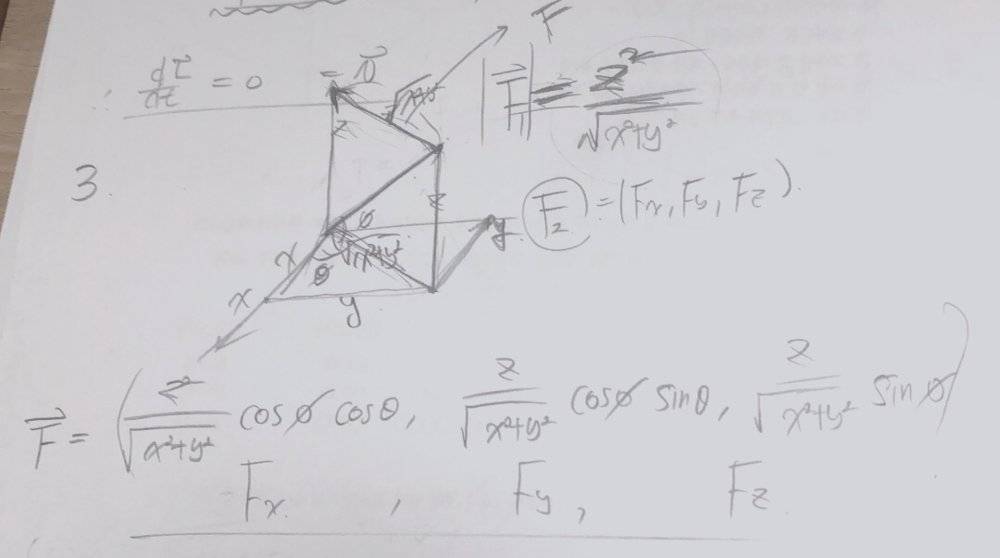 ∴ dτ⃗/dt = 0 = 0⃗
F⃗
|F⃗| = z²/√(x²+y²)
3.
z
z
F_z = (Fx, Fy, Fz).
φ
√(x²+y²)
y
x
θ
x
y
F⃗ = (z²/√(x²+y²) cosφ cosθ, z/√(x²+y²) cosφ sinθ, z/√(x²+y²) sinφ)
Fx , Fy , Fz